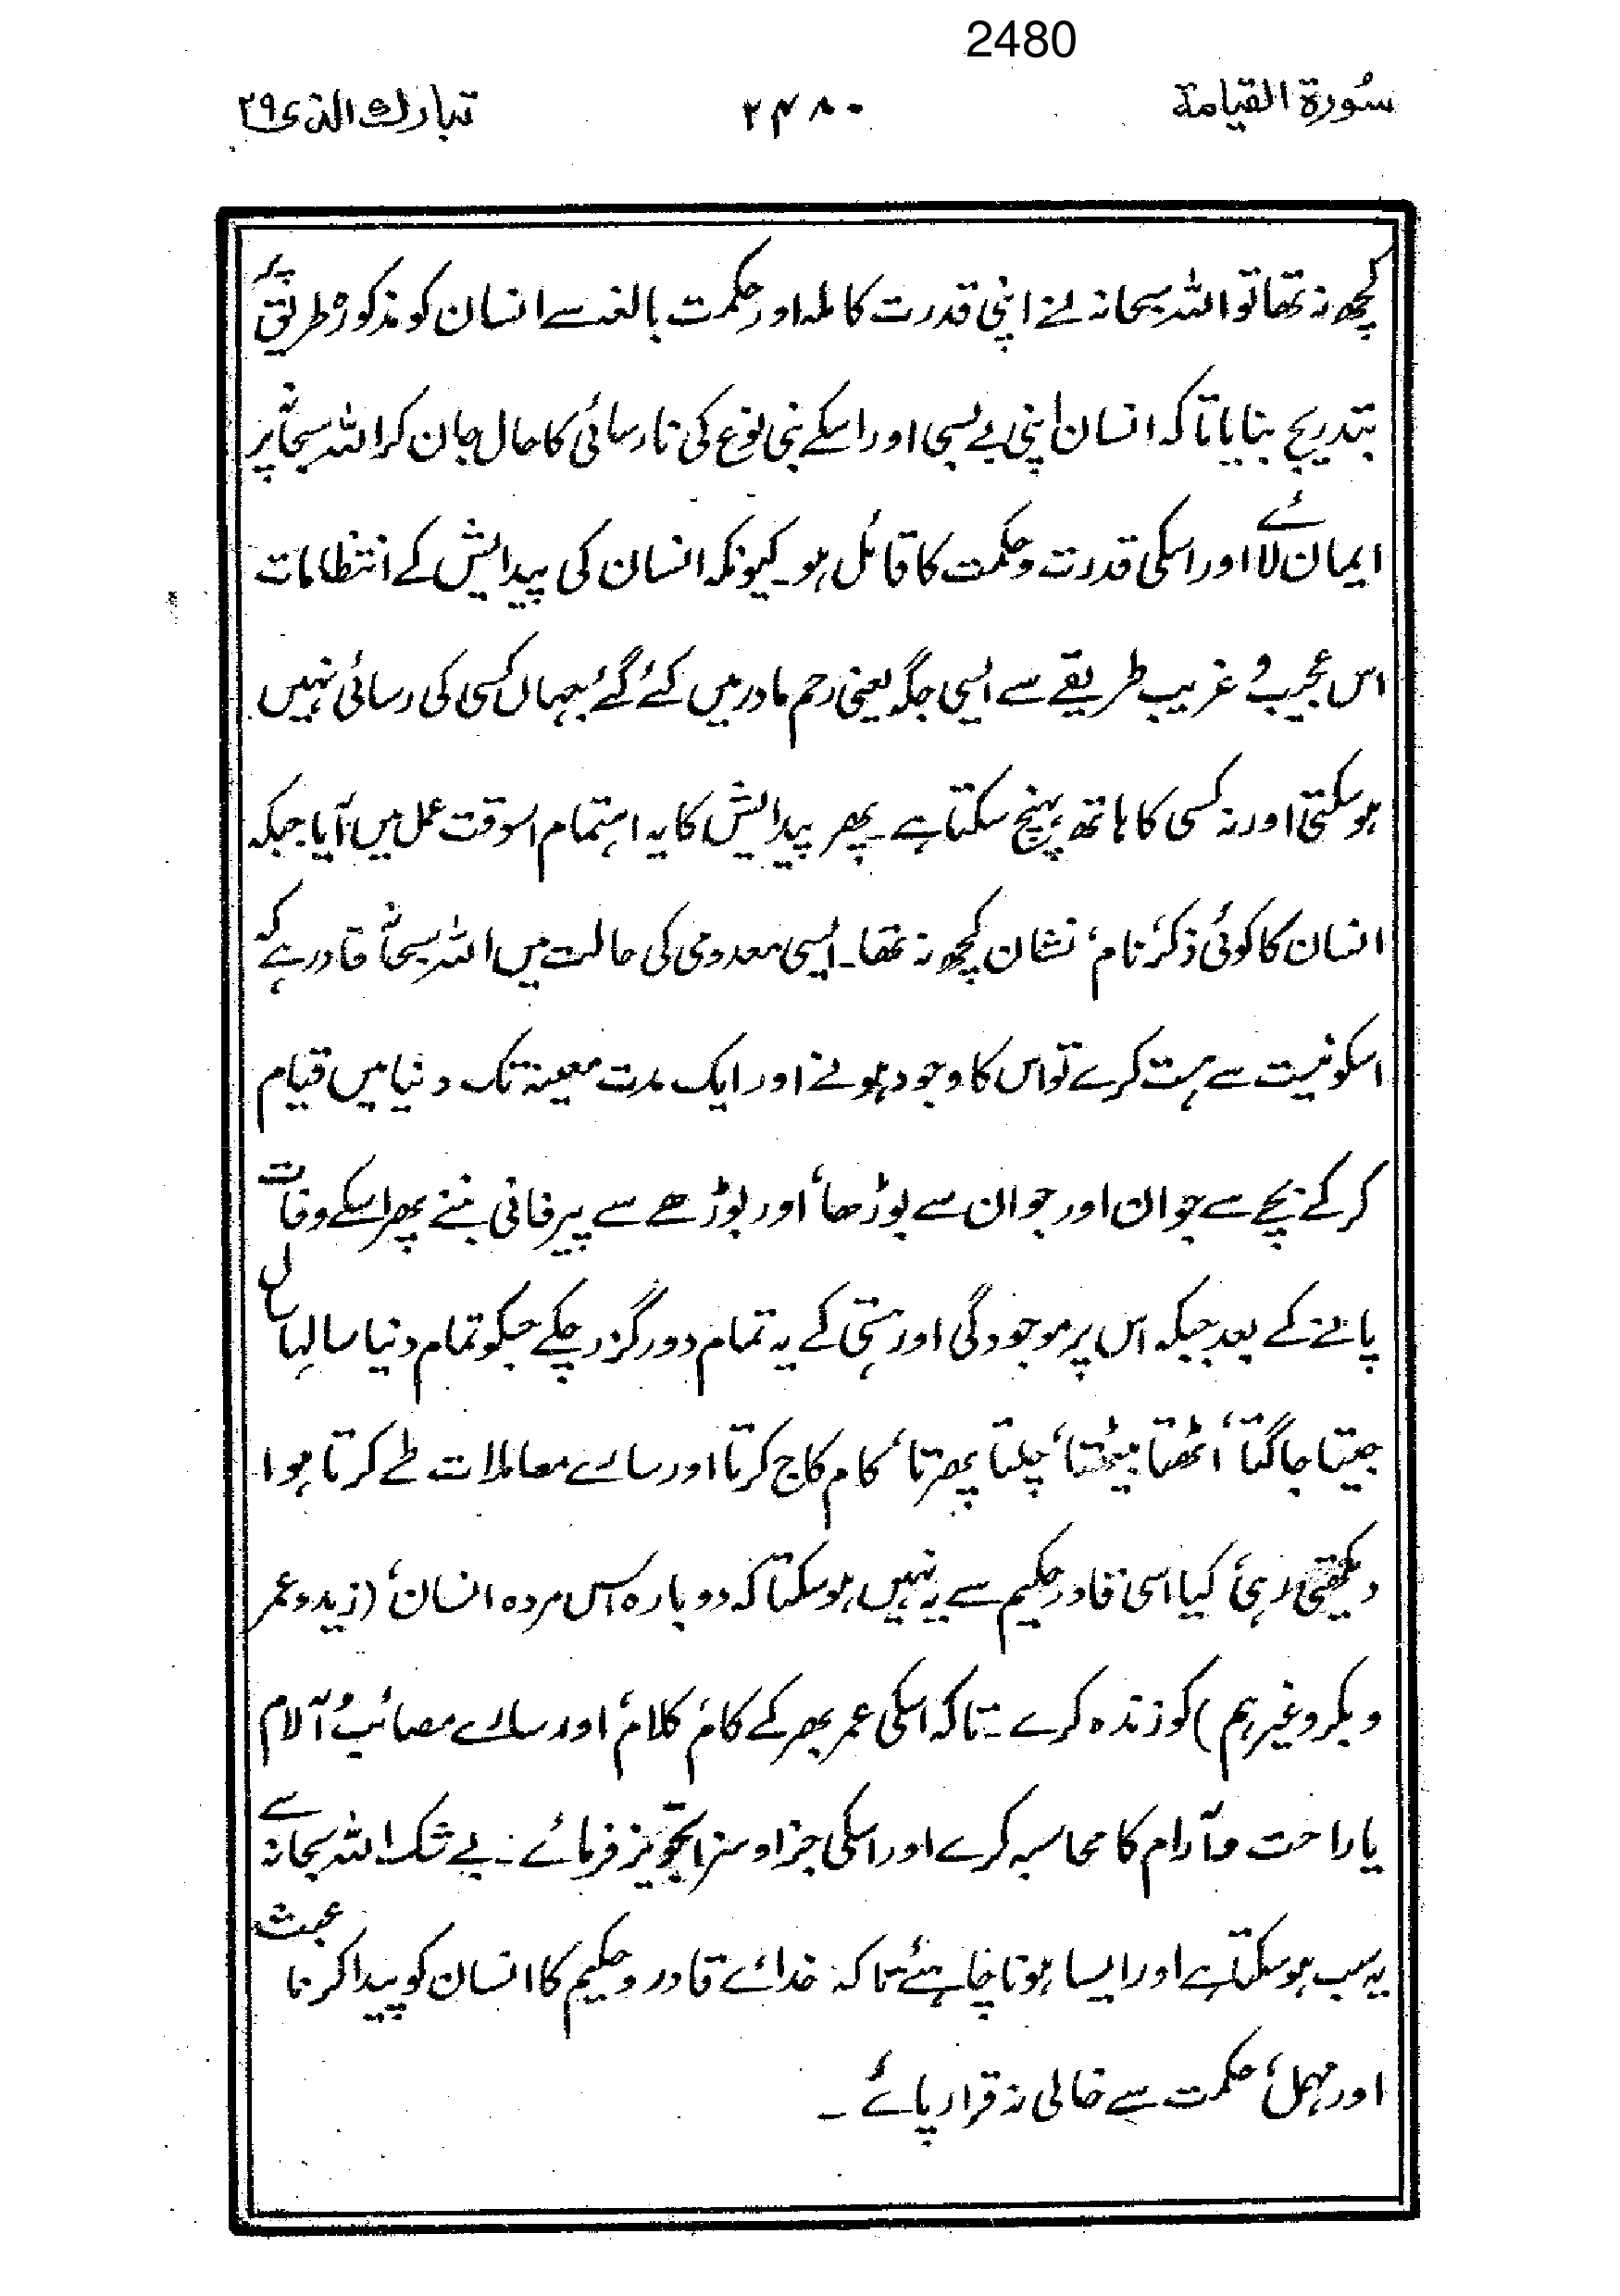 2480
سُورۃ القیامۃ ۲۴۸۰ تبارك الذی ۲۹
کچھ نہ تھا تو اللہ سبحانہ نے اپنی قدرت کاملہ اور حکمت بالغہ سے انسان کو مذکورہ طریق پر
بتدریج بنایا تاکہ انسان اپنی بے بسی اور اسکے بنی نوع کی نارسائی کا حال جان کر اللہ سبحانہٗ پر
ایمان لائے اور اسکی قدرت و حکمت کا قائل ہو۔ کیونکہ انسان کی پیدایش کے انتظامات
اس عجیب و غریب طریقے سے ایسی جگہ یعنی رحم مادر میں کئے گئے، جہاں کسی کی رسائی نہیں
ہو سکتی اور نہ کسی کا ہاتھ پہنچ سکتا ہے۔ پھر پیدایش کا یہ اہتمام اسوقت عمل میں آیا جبکہ
انسان کا کوئی ذکر، نام، نشان کچھ نہ تھا۔ ایسی معدومی کی حالت میں اللہ سبحانہٗ قادر ہے کہ
اسکو نیست سے ہست کرے تو اس کا وجود ہونے اور ایک مدت معینہ تک دنیا میں قیام
کر کے بچے سے جوان اور جوان سے بوڑھا، اور بوڑھے سے پیر فانی بنے پھر اسکے وفات
پانے کے بعد جبکہ اس پر موجودگی اور ہستی کے یہ تمام دور گزر چکے جسکو تمام دنیا سالہا سال
جیتا جاگتا، اُٹھتا بیٹھتا، چلتا پھرتا، کام کاج کرتا اور سارے معاملات طے کرتا ہوا
دیکھتی رہی، کیا اسی قادر حکیم سے یہ نہیں ہو سکتا کہ دوبارہ اس مردہ انسان، (زید و عمر
و بکر و غیرہم) کو زندہ کرے۔ تاکہ اسکی عمر بھر کے کام، کلام، اور سارے مصائب و آلام
یا راحت و آرام کا محاسبہ کرے اور اسکی جزا و سزا تجویز فرمائے۔ بے شک اللہ سبحانہ سے
یہ سب ہو سکتا ہے اور ایسا ہونا چاہئے تاکہ خدائے قادر و حکیم کا انسان کو پیدا کرنا عبث
اور مہمل، حکمت سے خالی نہ قرار پائے۔